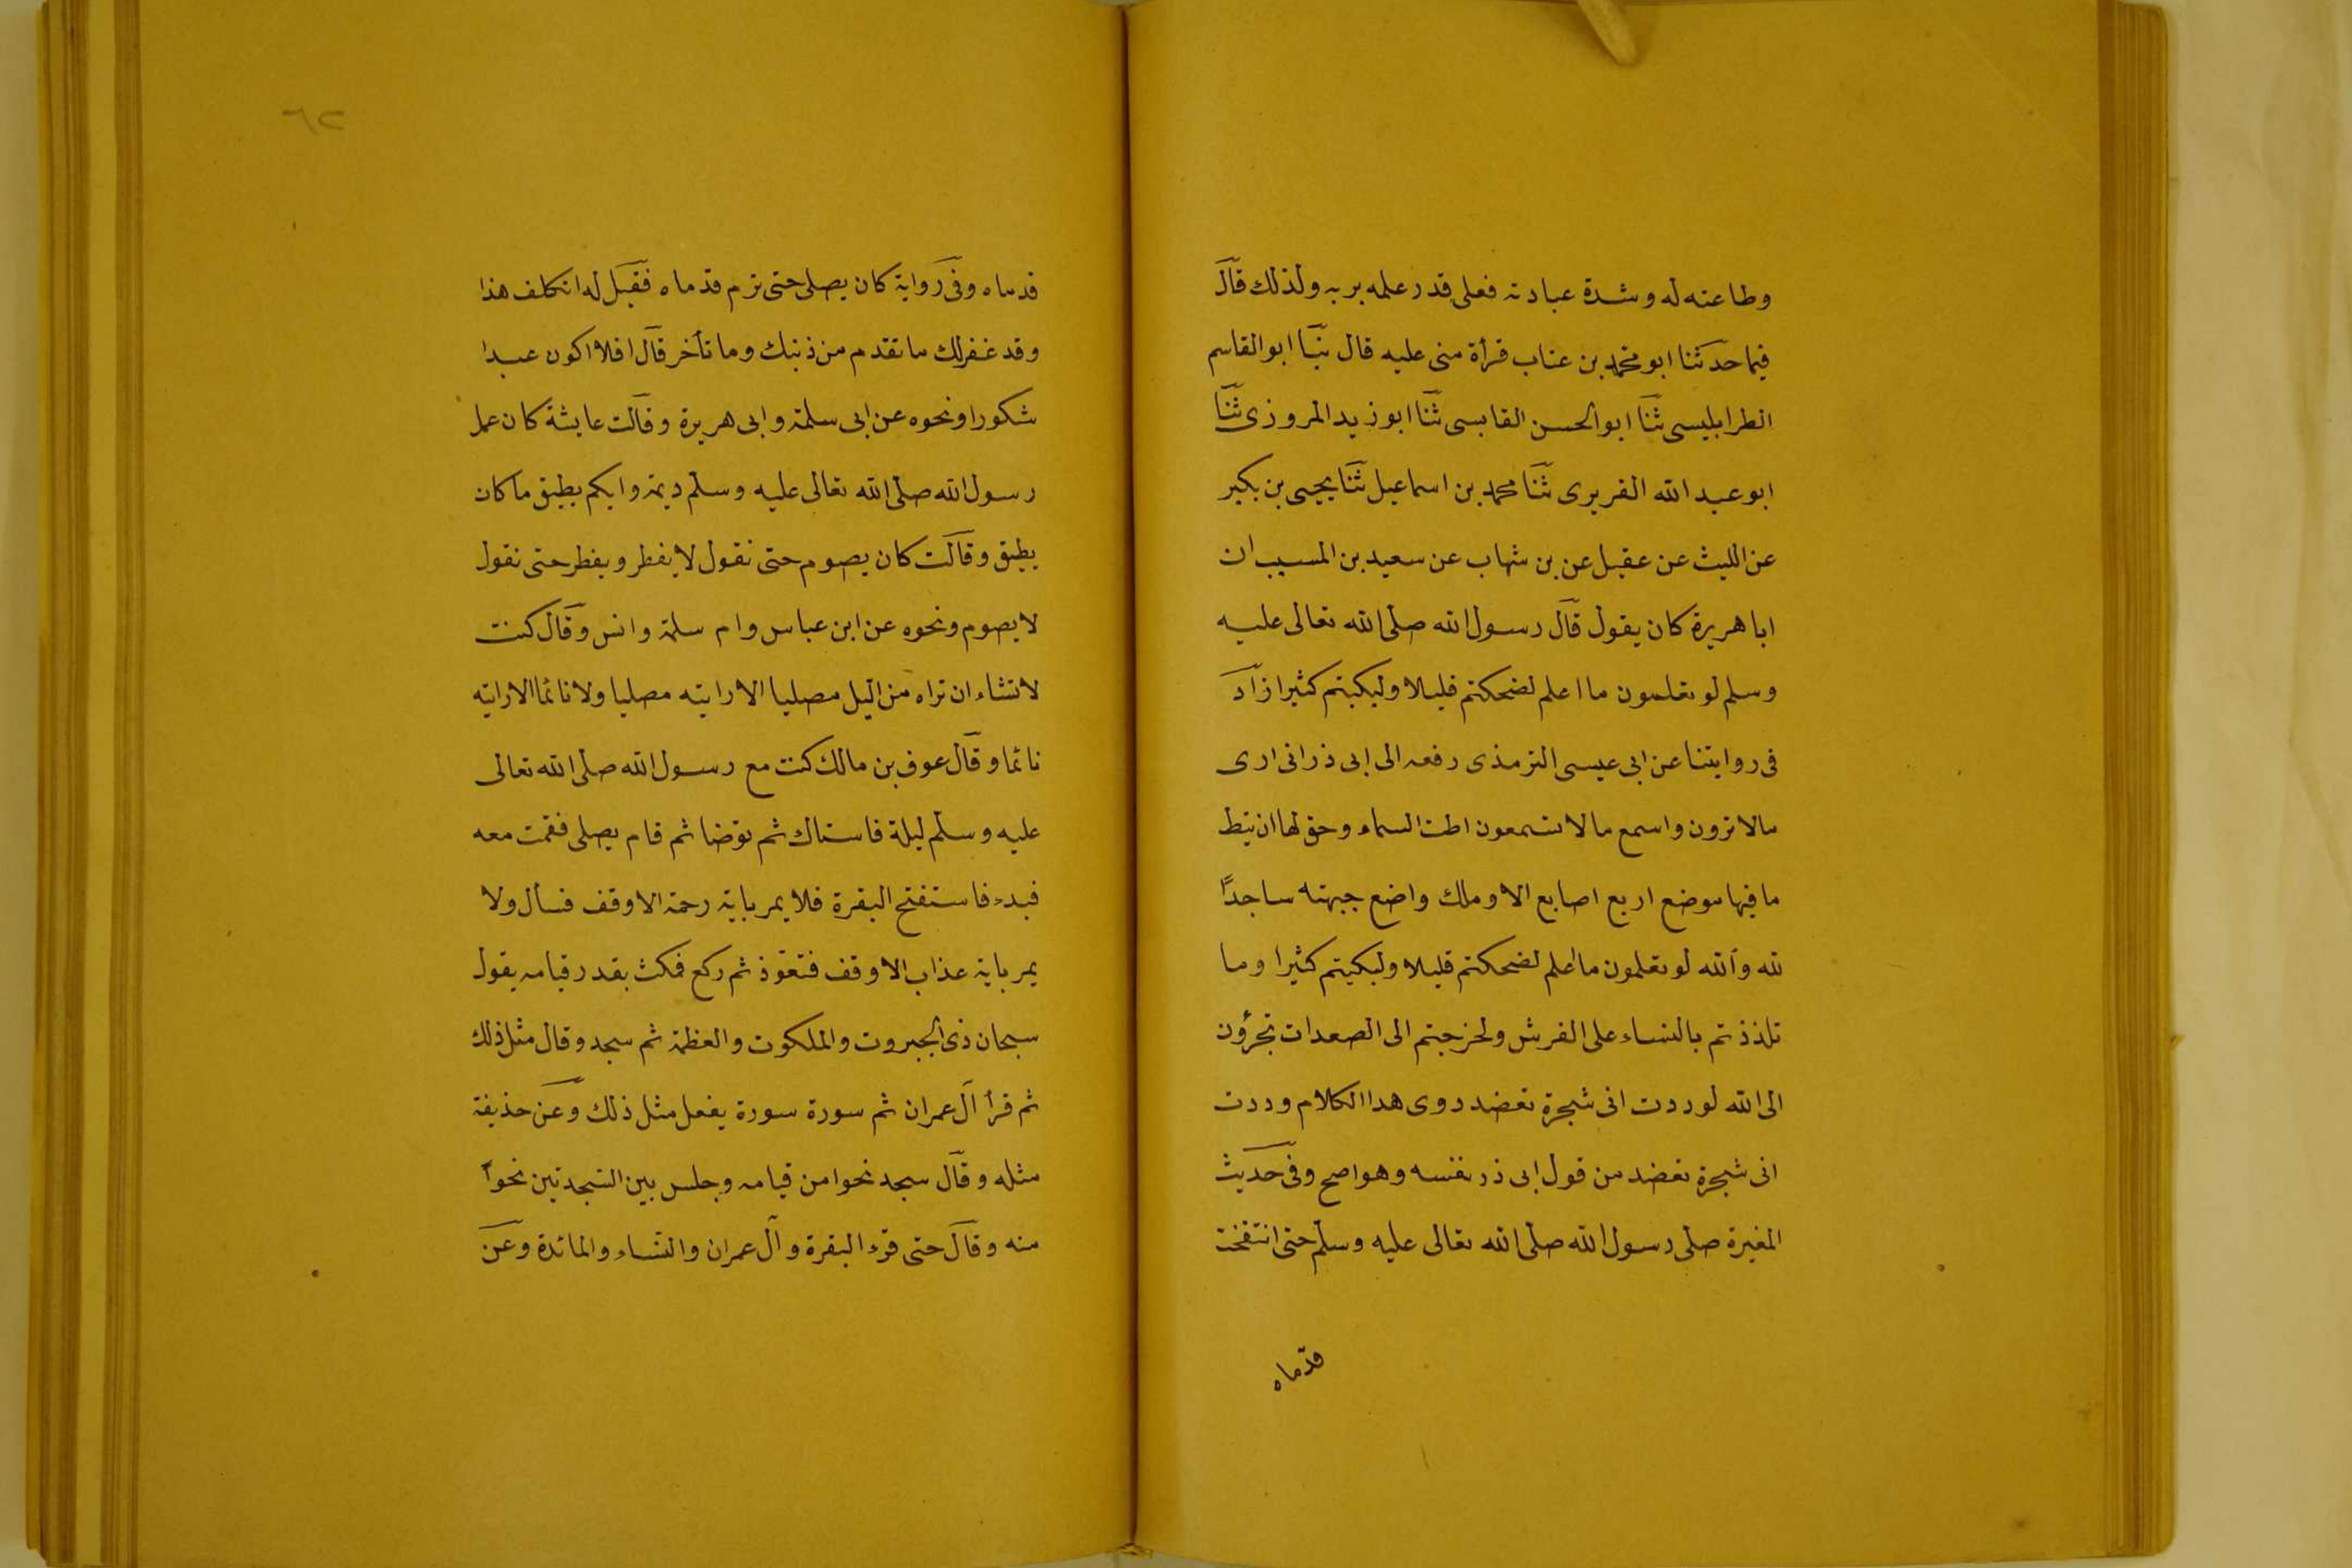 وطاعته له وشدة عبادته فعلى قدر علمه بربه ولذلك قال
فيما حدثنا ابو محمد بن عتاب قرأة منى عليه قال ثنا ابو القاسم
الطرابليسى ثنا ابو الحسن القابسى ثنا ابو زيد المروزى ثنا
ابو عبد الله الفربرى ثنا محمد بن اسماعيل ثنا يحيى بن بكير
عن الليث عن عقيل عن بن شهاب عن سعيد بن المسيب ان
ابا هريرة كان يقول قال رسول الله صلى الله تعالى عليه
وسلم لو تعلمون ما اعلم لضحكتم قليلا ولبكيتم كثيرا زاد
فى روايتنا عن ابى عيسى الترمذى رفعه الى ابى ذر انى ارى
مالا ترون واسمع مالا تسمعون اطت السماء وحق لها ان تئط
ما فيها موضع اربع اصابع الا وملك واضع جبهته ساجدًا
لله والله لو تعلمون ما أعلم لضحكتم قليلا ولبكيتم كثيرا وما
تلذذتم بالنساء على الفرش ولخرجتم الى الصعدات تجرؤن
الى الله لوددت انى شجرة تعضد روى هذا الكلام وددت
انى شجرة تعضد من قول ابى ذر نفسه وهو اصح وفى حديث
المغيرة صلى رسول الله صلى الله تعالى عليه وسلم حتى انتفخت
قدماه
٦٢
قدماه وفى رواية كان يصلى حتى ترم قدماه فقيل له اتكلف هذا
وقد غفر لك ما تقدم من ذنبك وما تأخر قال افلا اكون عبدا
شكورا ونحوه عن ابى سلمة وابى هريرة وقالت عايشة كان عمل
رسول الله صلى الله تعالى عليه وسلم ديمة وايكم يطيق ما كان
يطيق وقالت كان يصوم حتى نقول لا يفطر ويفطر حتى نقول
لا يصوم ونحوه عن ابن عباس وام سلمة وانس وقال كنت
لا تشاء ان تراه من اليل مصليا الا رايته مصليا ولا نائما الا رايته
نائما وقال عوف بن مالك كنت مع رسول الله صلى الله تعالى
عليه وسلم ليلة فاستاك ثم توضا ثم قام يصلى فقمت معه
فبدء فاستفتح البقرة فلا يمر باية رحمة الا وقف فسأل ولا
يمر باية عذاب الا وقف فتعوّذ ثم ركع فمكث بقدر قيامه يقول
سبحان ذى الجبروت والملكوت والعظمة ثم سجد وقال مثل ذلك
ثم قرأ آل عمران ثم سورة سورة يفعل مثل ذلك وعن حذيفة
مثله وقال سجد نحوا من قيامه وجلس بين السجدتين نحوا
منه وقال حتى قرء البقرة وآل عمران والنساء والمائدة وعن